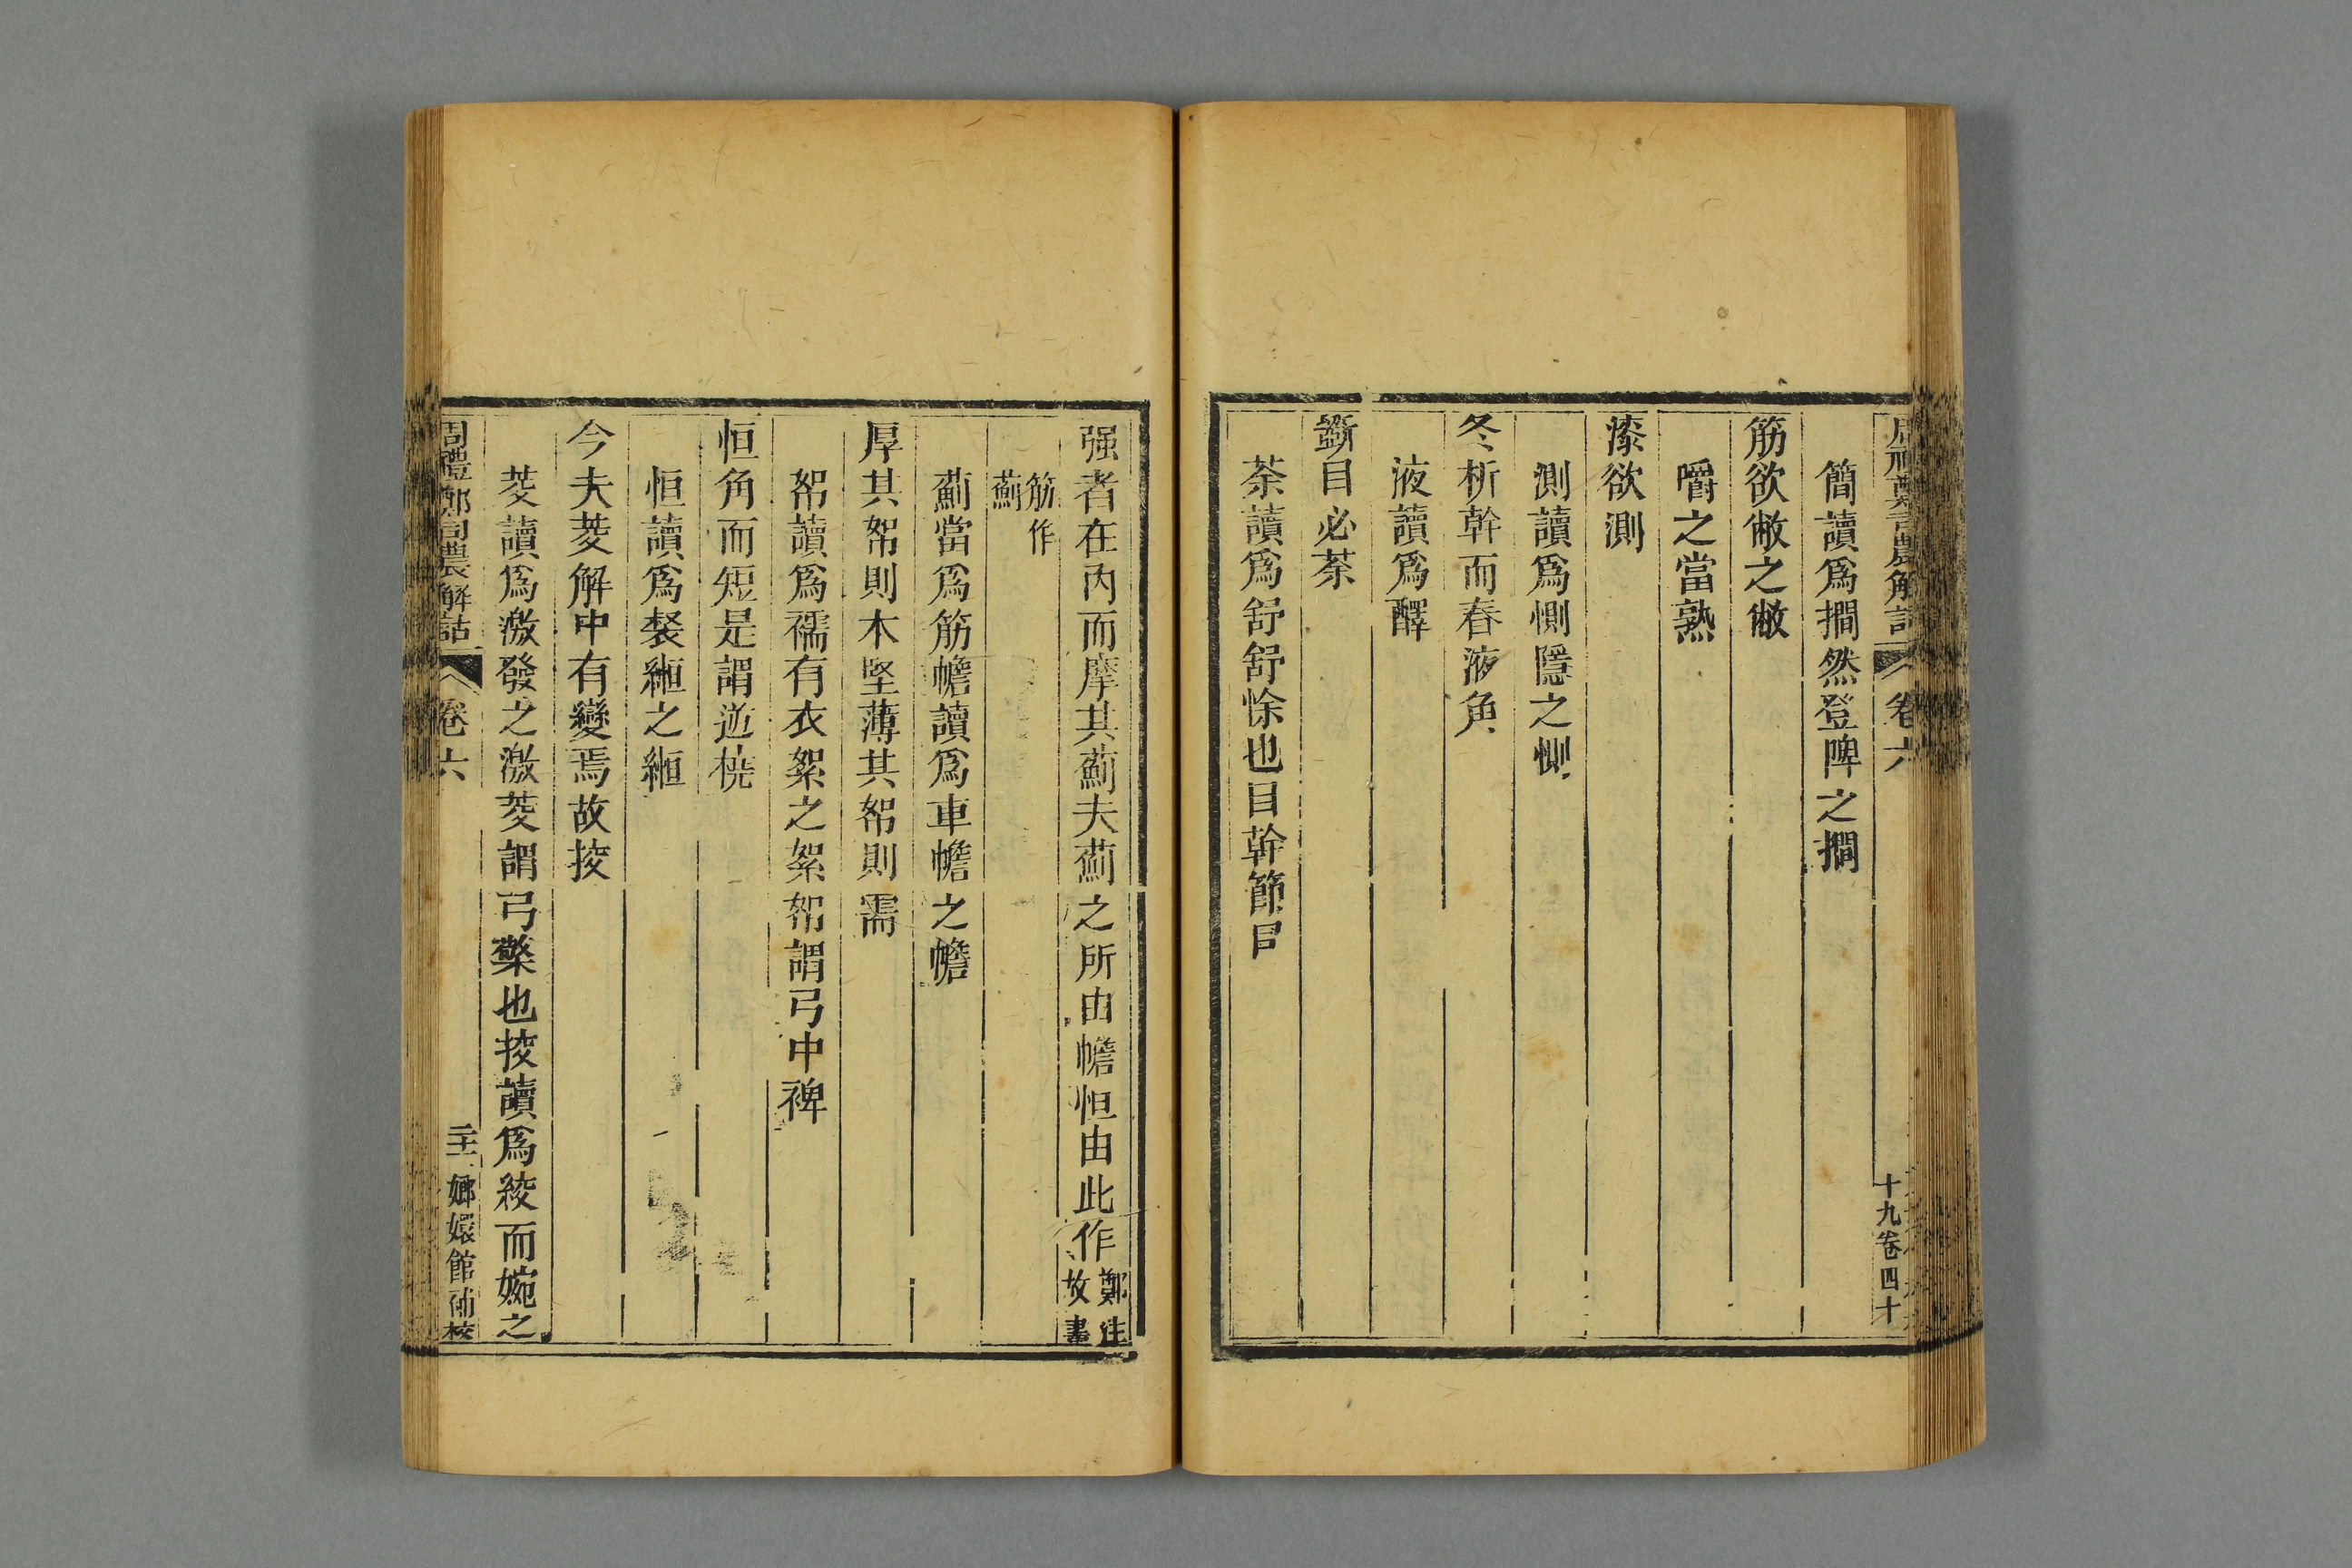 簡讀爲撊然登陴之撊
筋欲敝之敝
嚼之當熟
漆欲測
測讀爲惻隱之惻
冬析幹而春液角
液讀爲醳
斲目必荼
荼讀爲舒舒徐也目幹節目
周禮鄭司農解詁 卷六 十九卷四十
强者在內而摩其藰夫藰之所由幨恒由此作 鄭注故書
筋作藰
藰當爲筋幨讀爲車幨之幨
厚其帤則木堅薄其帤則需
帤讀爲襦有衣絮之絮帤謂弓中裨
恒角而短是謂逆橈
恒讀爲裻緪之緪
今夫茭解中有變焉故挍
茭讀爲激發之激茭謂弓檠也挍讀爲絞而婉之
周禮鄭司農解詁 卷六 二十 嫏嬛館補校